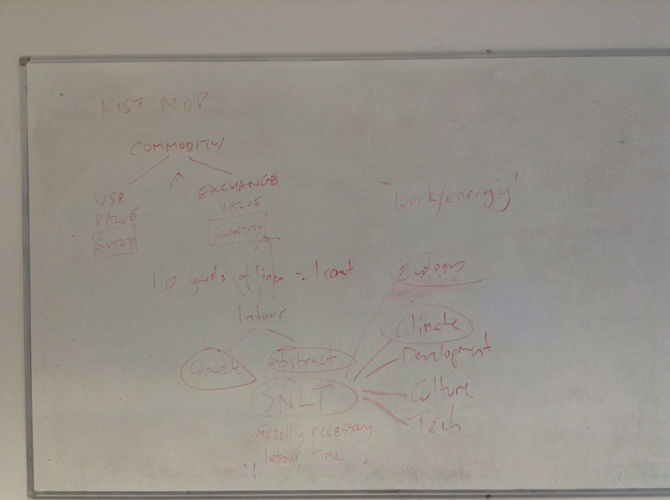 COMMODITY
USE
VALUE
QUALITY
EXCHANGE
VALUE
QUANTITY
'work/energy'
10 yards of linen = 1 coat
labour
Concrete
abstract
SNLT
Socially necessary
labour time
Climate
Development
Culture
Tech